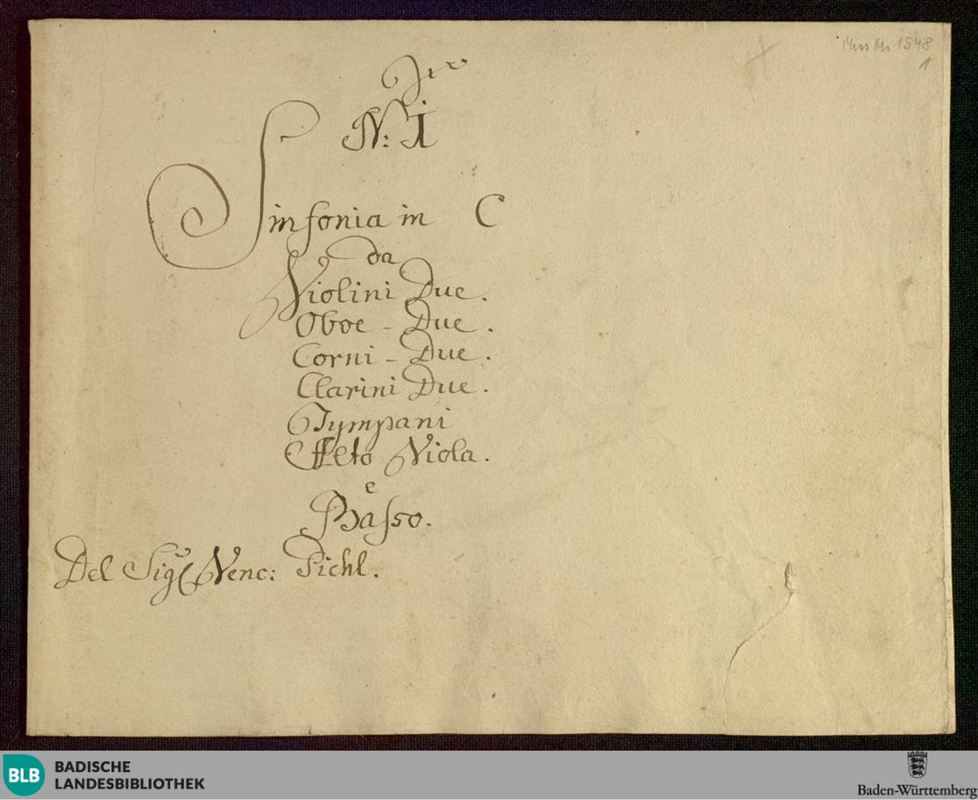 Mus Hs 1548
1
N: I
Sinfonia in C
da
Violini Due.
Oboe - Due.
Corni - Due.
Clarini Due.
Tympani
Alto Viola.
e
Basso.
Del Sigl Venc: Pichl.
BLB BADISCHE
LANDESBIBLIOTHEK
Baden-Württemberg